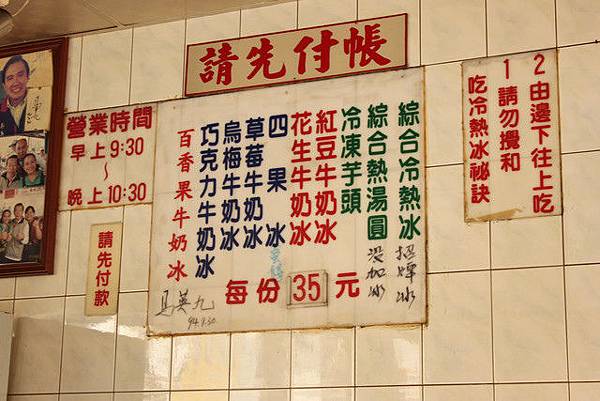 請先付帳
營業時間
早上9:30
～
晚上10:30
請先付款
綜合冷熱冰
招牌冰
綜合熱湯圓
沒加冰
冷凍芋頭
紅豆牛奶冰
花生牛奶冰
四果冰
草莓牛奶冰
烏梅牛奶冰
巧克力牛奶冰
百香果牛奶冰
每份35元
馬英九
94.9.30
吃冷熱冰祕訣
1請勿攪和
2由邊下往上吃